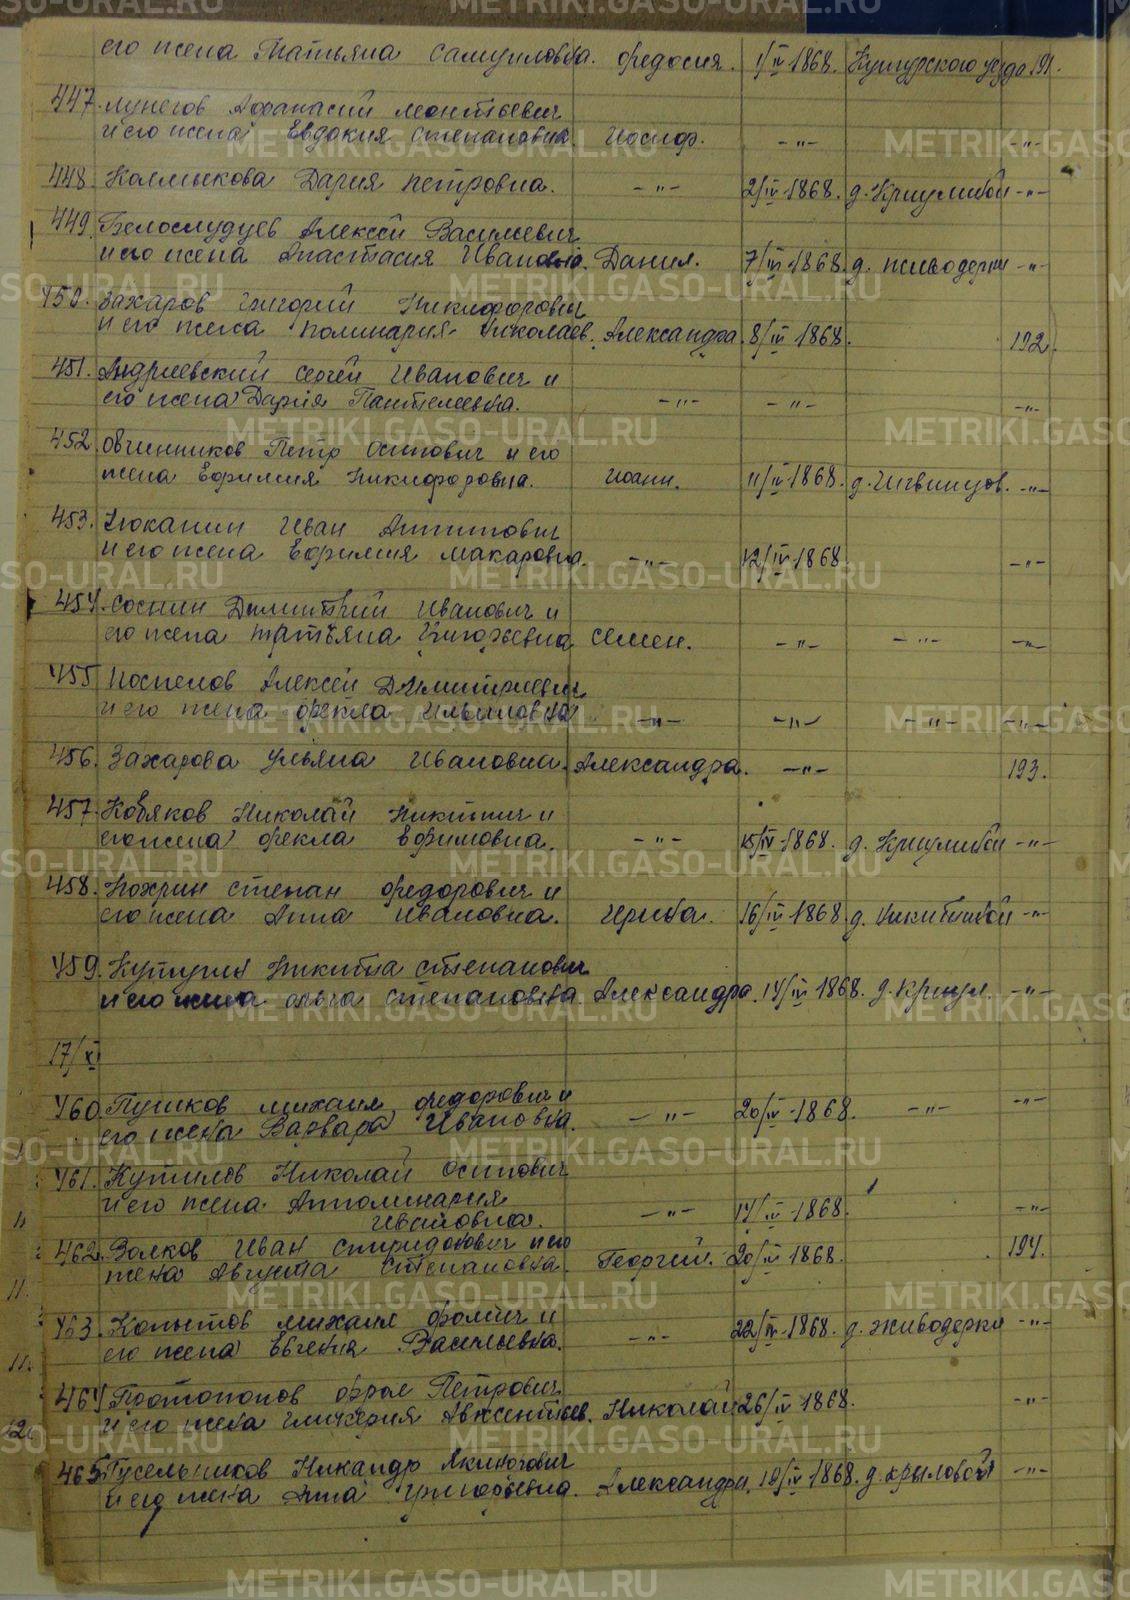 его жена Татьяна Самуиловна. Федосия. 1/IV 1868. Кунгурского уезда 191.
447. Лунегов Афанасий Леонтьевич
и его жена Евдокия Степановна. Иосиф. -"- -"-
448. Колмыкова Дария Петровна. -"- 2/IV-1868. д. Криулиной -"-
449. Белослудцев Алексей Васильевич
и его жена Анастасия Ивановна. Данил. 7/IV-1868. д. Живодерки -"-
450. Захаров Григорий Никифорович
и его жена Полинария Николаев. Александра. 8/IV 1868. 192.
451. Андриевский Сергей Иванович и
его жена Дария Пантелеевна. -"- -"- -"-
452. Овчинников Петр Осипович и его
жена Ефимия Никифоровна. Иоанн. 11/IV-1868. д. -"-
453. Иван
и его жена Ефимия Макаровна. -"- 12/IV-1868 -"-
454. Соснин Димитрий Иванович и
его жена Татьяна Григорьевна Семен. -"- -"- -"-
455 Поспелов Алексей Димитриевич
и его жена Фекла -"- -"- -"- -"-
456. Захарова Ульяна Ивановна. Александра. -"- 193.
457. Кобяков Николай Никитич и
его жена Фекла Ефимовна. -"- 15/IV-1868. д. Криулиной -"-
458. Кохрин Степан Федорович и
его жена Анна Ивановна. 16/IV-1868. д. -"-
459. Никита Степанович
и его жена Ольга Степановна. Александра. 14/IV 1868. д. Криул. -"-
17/XI
460. Пушков Михаил Федорович и
его жена Варвара Ивановна. -"- 20/IV-1868. -"- -"-
461. Кутилов Николай Осипович
и его жена Апполинария
Ивановна. -"- 14/IV-1868. -"-
462. Волков Иван Спиридонович и его
жена Августа Степановна. Георгий. 20/IV 1868. 194.
463. Копытов Михаил Фомич и
его жена Евгения Васильевна. -"- 22/IV-1868. д. Живодерки -"-
464 Протопопов Фрол Петрович
и его жена Гликерия Авксентьев. Николай 26/IV-1868. -"-
465. Гусельников Никандр
и его жена Анна Григорьевна. Александра. 18/IV 1868. д. Крыловой -"-
METRIKI.GASO-URAL.RU